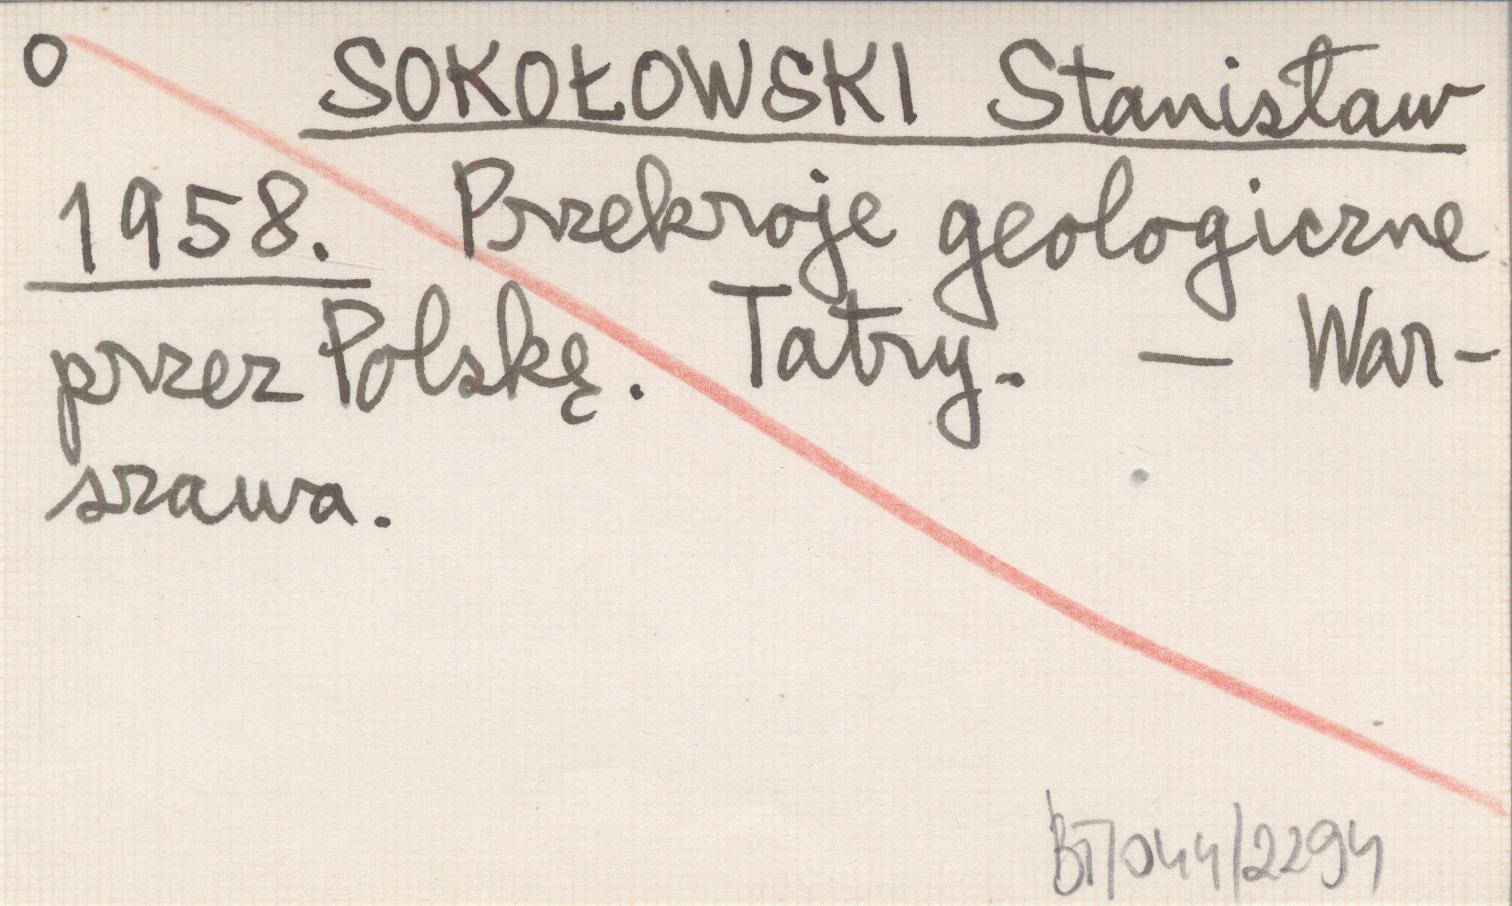 O SOKOŁOWSKI Stanisław
1958. Przekroje geologiczne
przez Polskę. Tatry. — War-
szawa.
BT/044/2294